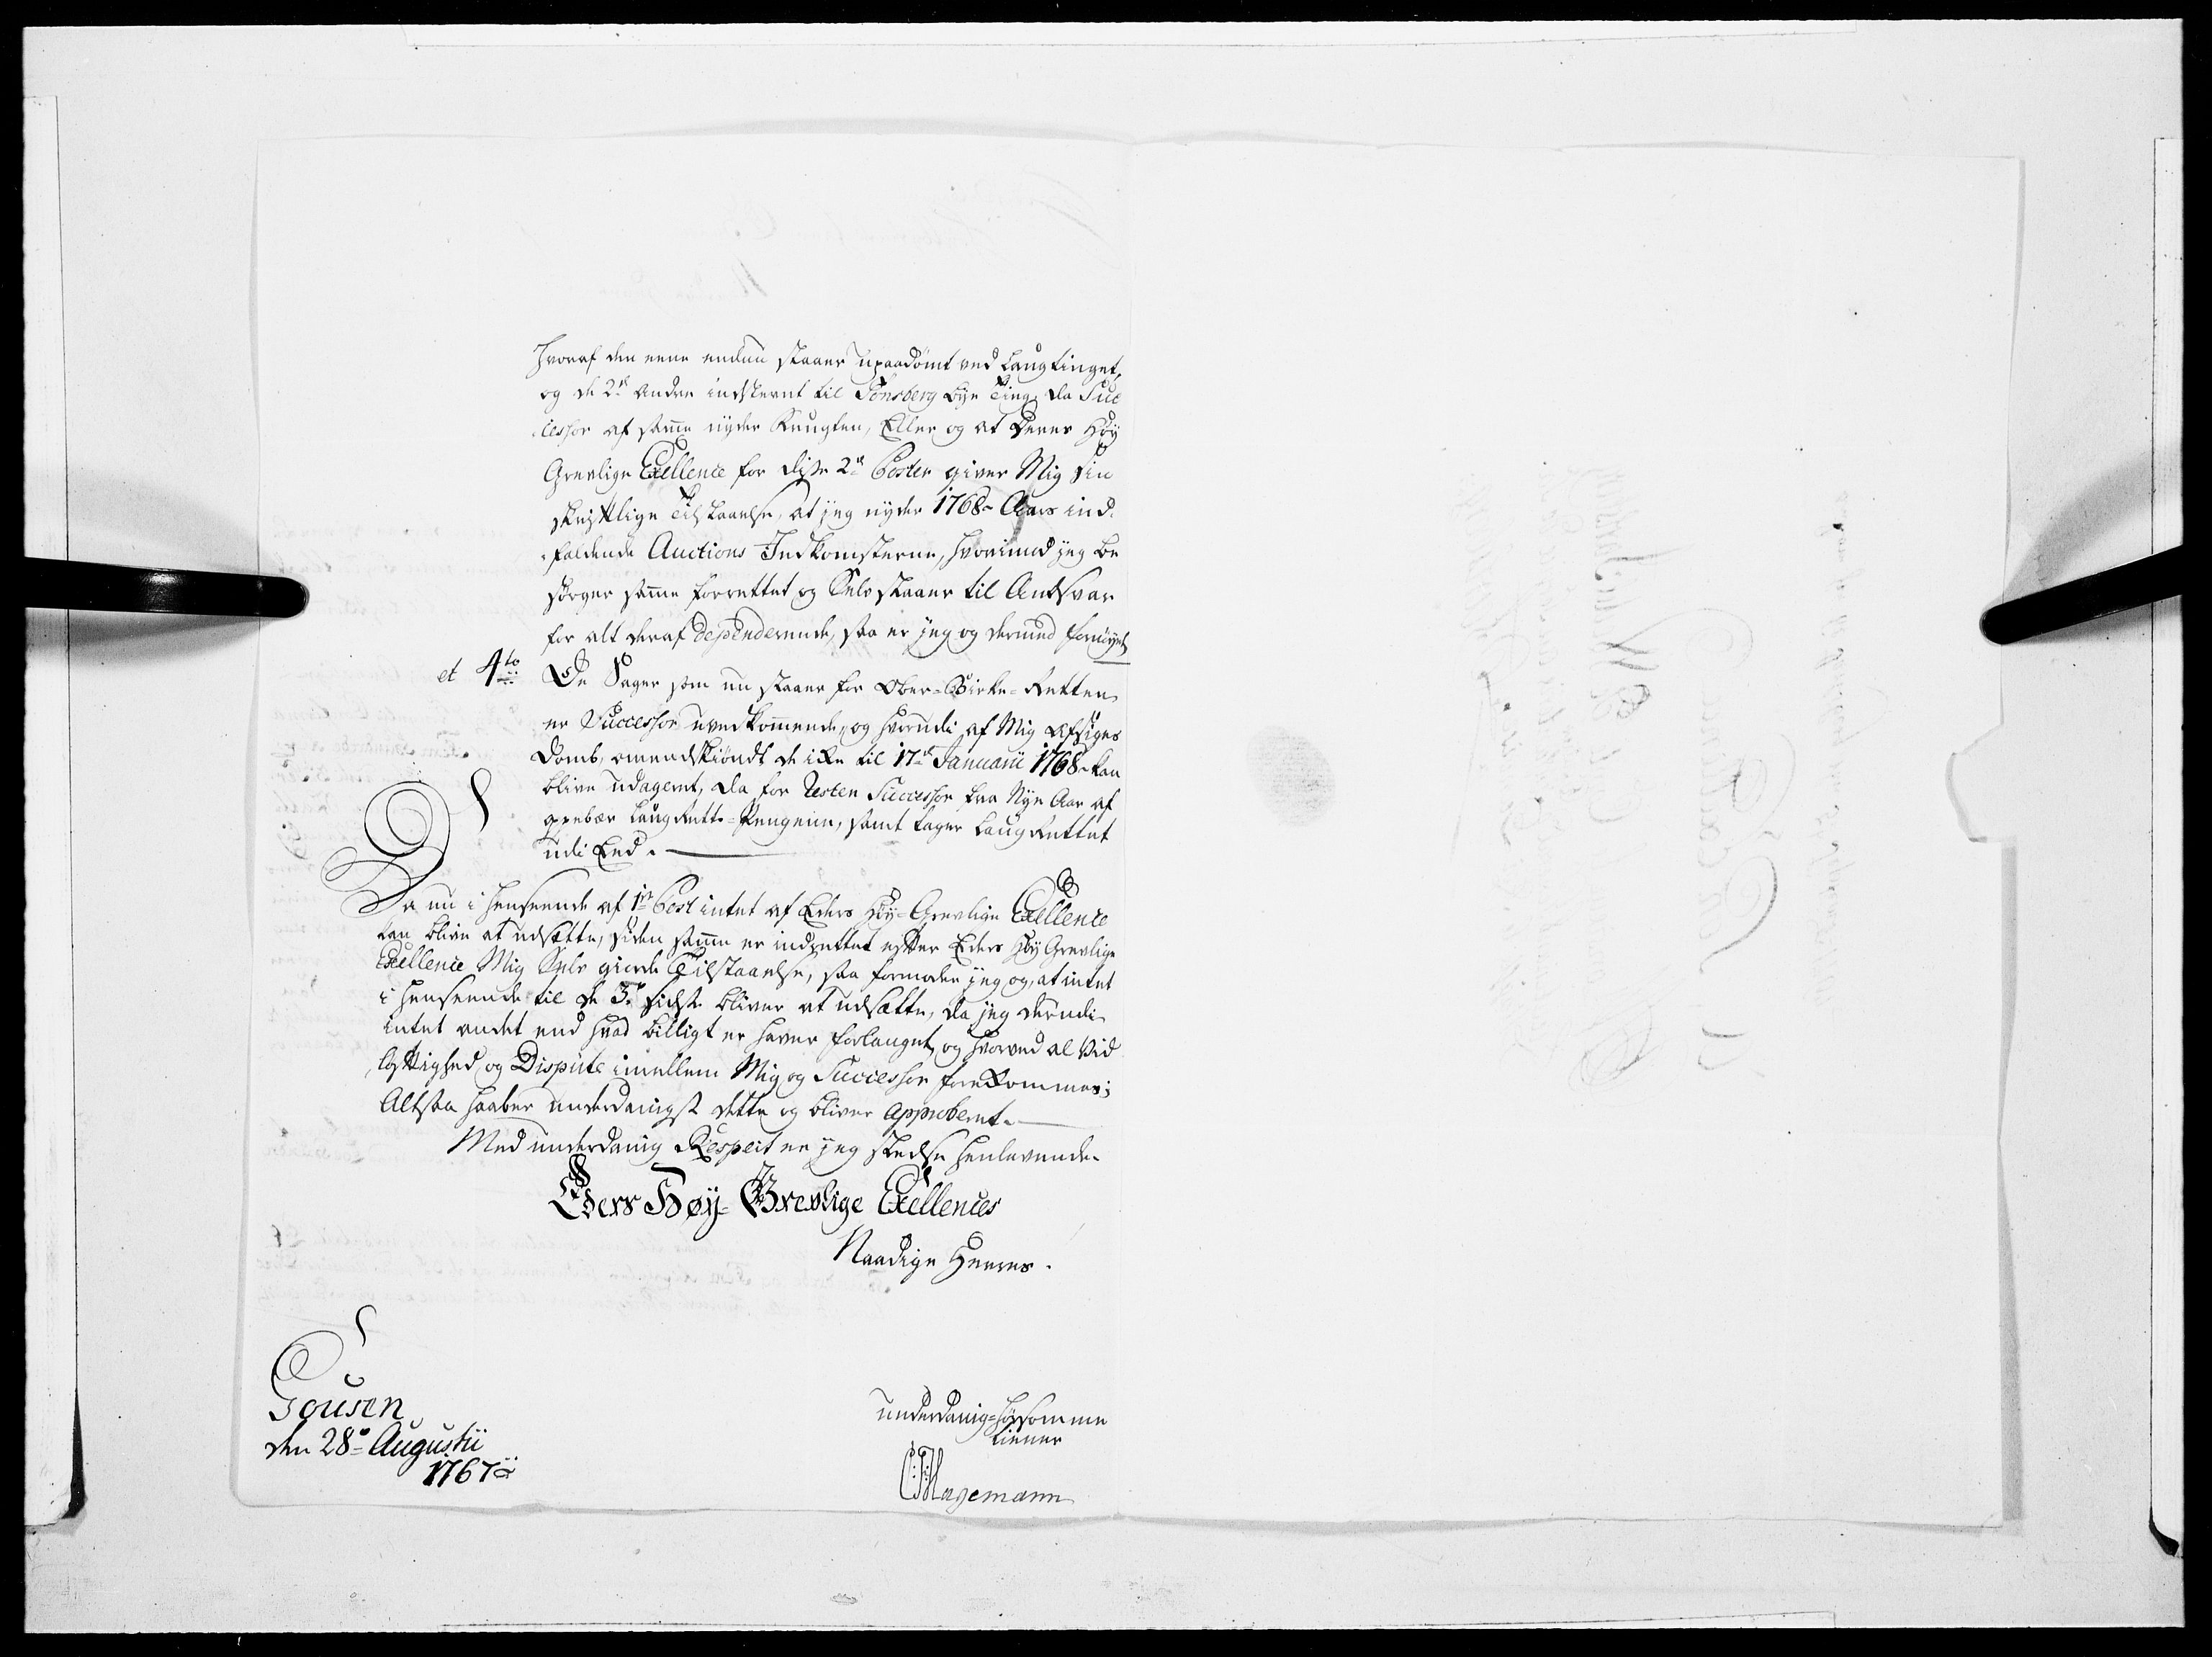 hvoraf den eene endnu staaer upaadömt ved Laugtinget,
og de 2de andre indstevnt til Tönsberg bye Ting, da Suc
cessor af samme nyder Knugten, Eller og at Deres Høy
Grevlige Exellence for disse 2de Poster giver Mig sin
skriftlige Tilstaaelse, at jeg nyder 1768 Aars ind-
faldende Auctions Indkomsterne, hvorimod jeg be
sörger samme forrettet og Selv staaer til Andsvar
for alt deraf dependerende, saa er jeg og dermed fornöyet,
et 4to De Sager som nu staaer for Ober-Birke-Retten
er Successor uvedkommende, og hvorudi af Mig afsiges
Domb, omendskiöndt de icke til 17de Januarii 1768 kan
blive udageret, da for Resten Successor fra Nye Aar af
oppebær LaugRetts-Pengene, samt tager LaugRettet
udi Eed.
Da nu i henseende af 1ste Post intet af Eders Høy-Grevlige Exellence
kan blive at udsætte, siden samme er indrettet efter Eders Høy Grevlige
Exellence Mig Selv giorde Tilstaaelse, saa formoder jeg og, at intet
i henseende til de 3de sidste bliver at udsætte, da jeg derudi
intet andet end hvad billigt er haver forlanget, og hvorved al Vid
löftighed og Dispute imellem Mig og Successor forekommes;
Altsaa haaber underdanigst dette og bliver approberet.
Med underdanig Respect er jeg stedse henlevende
Eders Høy-Grevlige Exellences
Naadige Herres.
Gousen
den 28de Augustii
1767
underdanig-hörsomme
tiener
Hagemann